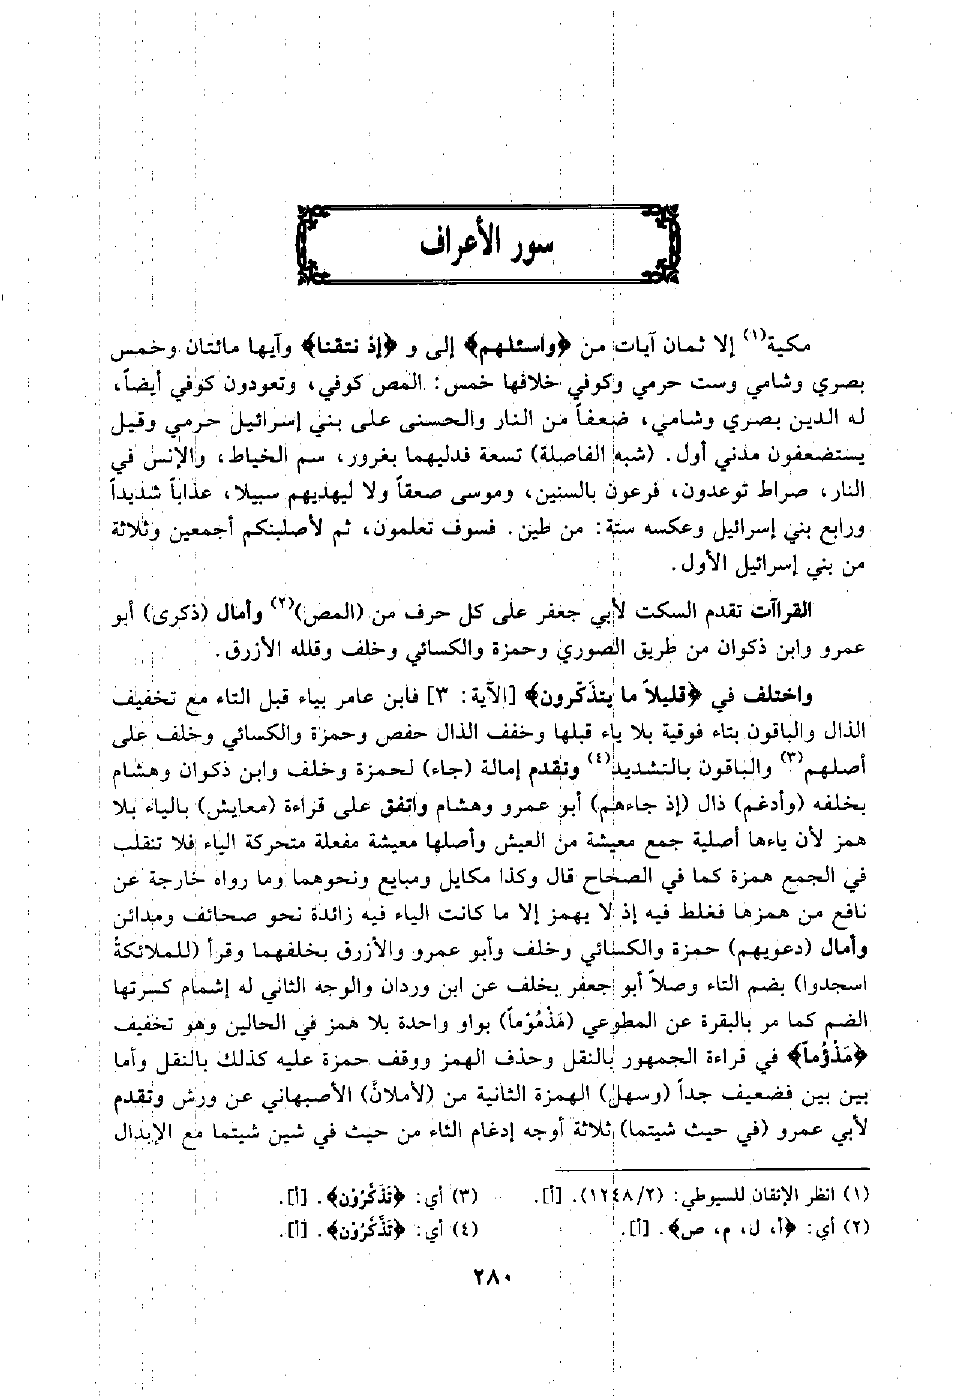 سور الأعراف
مكية(١) إلا ثمان آيات من ﴿واسئلهم﴾ إلى و ﴿إذ نتقنا﴾ وآيها مائتان وخمس
بصري وشامي وست حرمي وكوفي خلافها خمس: المص كوفي، وتعودون كوفي أيضاً،
له الدين بصري وشامي، ضعفاً من النار والحسنى على بني إسرائيل حرمي وقيل
يستضعفون مدني أول. (شبه الفاصلة) تسعة فدليهما بغرور، سم الخياط، والإنس في
النار، صراط توعدون، فرعون بالسنين، وموسى صعقاً ولا ليهديهم سبيلا، عذاباً شديداً
ورابع بني إسرائيل وعكسه ستة: من طين. فسوف تعلمون، ثم لأصلبنكم أجمعين وثلاثة
من بني إسرائيل الأول.
القراآت تقدم السكت لأبي جعفر على كل حرف من (المص)(٢) وأمال (ذكرى) أبو
عمرو وابن ذكوان من طريق الصوري وحمزة والكسائي وخلف وقلله الأزرق.
واختلف في ﴿قليلاً ما يتذكرون﴾ [الآية: ٣] فابن عامر بياء قبل التاء مع تخفيف
الذال والباقون بتاء فوقية بلا ياء قبلها وخفف الذال حفص وحمزة والكسائي وخلف على
أصلهم(٣) والباقون بالتشديد(٤) وتقدم إمالة (جاء) لحمزة وخلف وابن ذكوان وهشام
بخلفه (وأدغم) ذال (إذ جاءهم) أبو عمرو وهشام واتفق على قراءة (معايش) بالياء بلا
همز لأن ياءها أصلية جمع معيشة من العيش وأصلها معيشة مفعلة متحركة الياء فلا تنقلب
في الجمع همزة كما في الصحاح قال وكذا مكايل ومبايع ونحوهما وما رواه خارجة عن
نافع من همزها فغلط فيه إذ لا يهمز إلا ما كانت الياء فيه زائدة نحو صحائف ومدائن
وأمال (دعويهم) حمزة والكسائي وخلف وأبو عمرو والأزرق بخلفهما وقرأ (للملائكةُ
اسجدوا) بضم التاء وصلاً أبو جعفر بخلف عن ابن وردان والوجه الثاني له إشمام كسرتها
الضم كما مر بالبقرة عن المطوعي (مَذْمُوْماً) بواو واحدة بلا همز في الحالين وهو تخفيف
﴿مَذْؤُماً﴾ في قراءة الجمهور بالنقل وحذف الهمز ووقف حمزة عليه كذلك بالنقل وأما
بين بين فضعيف جداً (وسهل) الهمزة الثانية من (لأملانَّ) الأصبهاني عن ورش وتقدم
لأبي عمرو (في حيث شيتما) ثلاثة أوجه إدغام الثاء من حيث في شين شيتما مع الإبدال
(١) انظر الإتقان للسيوطي: (١٢٤٨/٢). [أ].
(٢) أي: ﴿أ، ل، م، ص﴾. [أ].
(٣) أي: ﴿تَذَكَّرُوْن﴾. [أ].
(٤) أي: ﴿تَذَّكَّرُوْن﴾. [أ].
٢٨٠